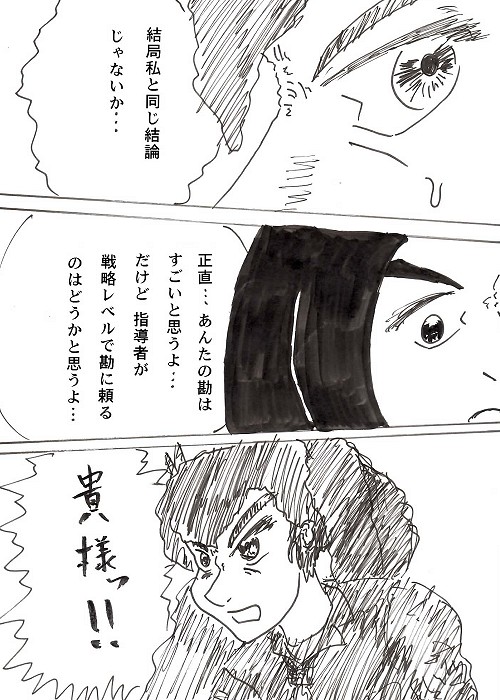 結局私と同じ結論
じゃないか…
正直…あんたの勘は
すごいと思うよ…
だけど 指導者が
戦略レベルで勘に頼る
のはどうかと思うよ…
貴様ッ!!